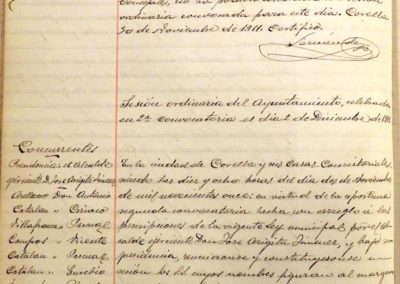 ordinaria convocada para este dia. Corella
30 de Noviembre de 1911. Certifico.
Sesión ordinaria del Ayuntamiento, celebrada
en 2ª convocatoria el dia 2 de Diciembre de 1911
Concurrentes
Presidencia el Alcalde
ejerciente D. José Arigita Jimenez
Arellano Don Antonio
Catalan " Ciriaco
Villafranca " Pascual
Campos " Vicente
Catalan " Pascual
Catalan " Eusebio
En la ciudad de Corella y sus Casas Consistoriales
siendo las diez y ocho horas del dia dos de Noviembre
de mil novecientos once: en virtud de la oportuna
segunda convocatoria hecha con arreglo a las
prescripciones de la vigente Ley municipal, por el Al-
calde ejerciente Don José Arigita Jimenez, y bajo su
presidencia, reunieronse y constituyeronse en
sesión los SS. cuyos nombres figuran al margen